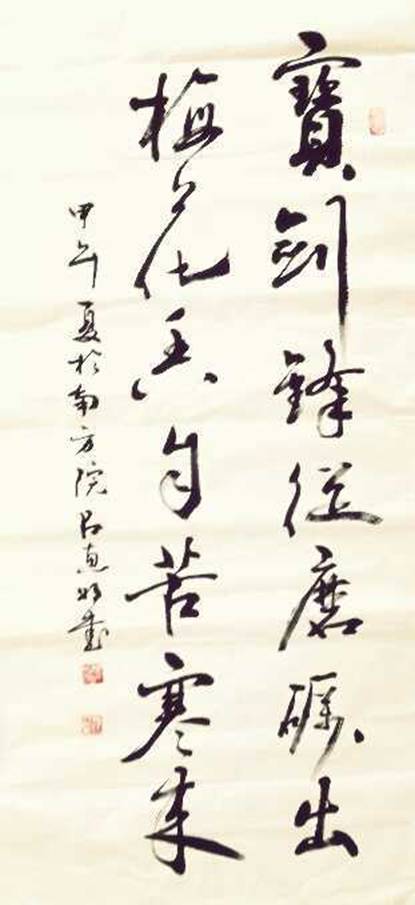 寶劍鋒從磨礪出
梅花香自苦寒來
甲午夏於南方院呂惠明書